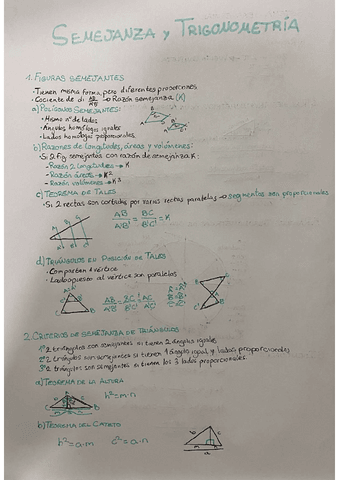 SEMEJANZA y TRIGONOMETRÍA
1. FIGURAS SEMEJANTES
- Tienen misma forma, pero diferentes proporciones
- Cociente de d: AB/A'B' → Razón semejanza (K)
a) POLÍGONOS SEMEJANTES:
- Mismo nº de lados
- Ángulos homólogos iguales
- Lados homólogos proporcionales
b) Razones de longitudes, áreas y volúmenes:
- Si 2 fig semejantes con razón de semejanza K:
- Razón longitudes → K
- Razón áreas → K²
- Razón volúmenes → K³
c) TEOREMA DE TALES
- Si 2 rectas son cortadas por varias rectas paralelas → segmentos son proporcionales
AB/A'B' = BC/B'C' = K
d) TRIÁNGULOS EN POSICIÓN DE TALES
- Comparten 1 vértice
- Lados opuesto al vértice son paralelos
AB/A'B' = BC/B'C' = AC/A'C'
2. CRITERIOS DE SEMEJANZA DE TRIÁNGULOS
1º 2 triángulos son semejantes si tienen 2 ángulos iguales
2º 2 triángulos son semejantes si tienen 1 ángulo igual y lados proporcionales
3º 2 triángulos son semejantes si tienen los 3 lados proporcionales.
a) TEOREMA DE LA ALTURA
h²=m·n
b) TEOREMA DEL CATETO
b²=a·m c²=a·n